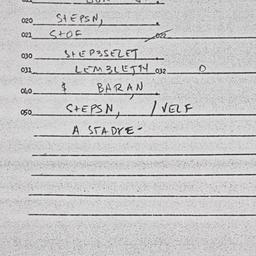 020 STEPSN,
021 STOF 022
030 STEP3SELET
031 LEM3LETN 032 0
040 $ BARAN
050 STEPSN, / VELF
A STADKE-